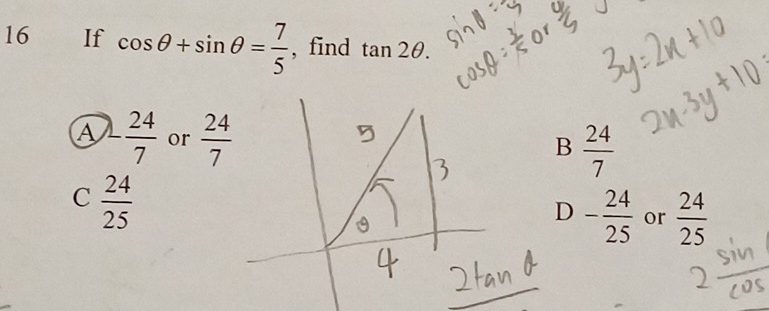 16 If cos θ + sin θ = 7/5, find tan 2θ.
sinθ =
cosθ = 3/5 or 4/5
3y = 2x + 10
2x - 3y + 10 =
A - 24/7 or 24/7
B 24/7
C 24/25
D - 24/25 or 24/25
5
3
θ
4
2 tan θ
2 sin
cos